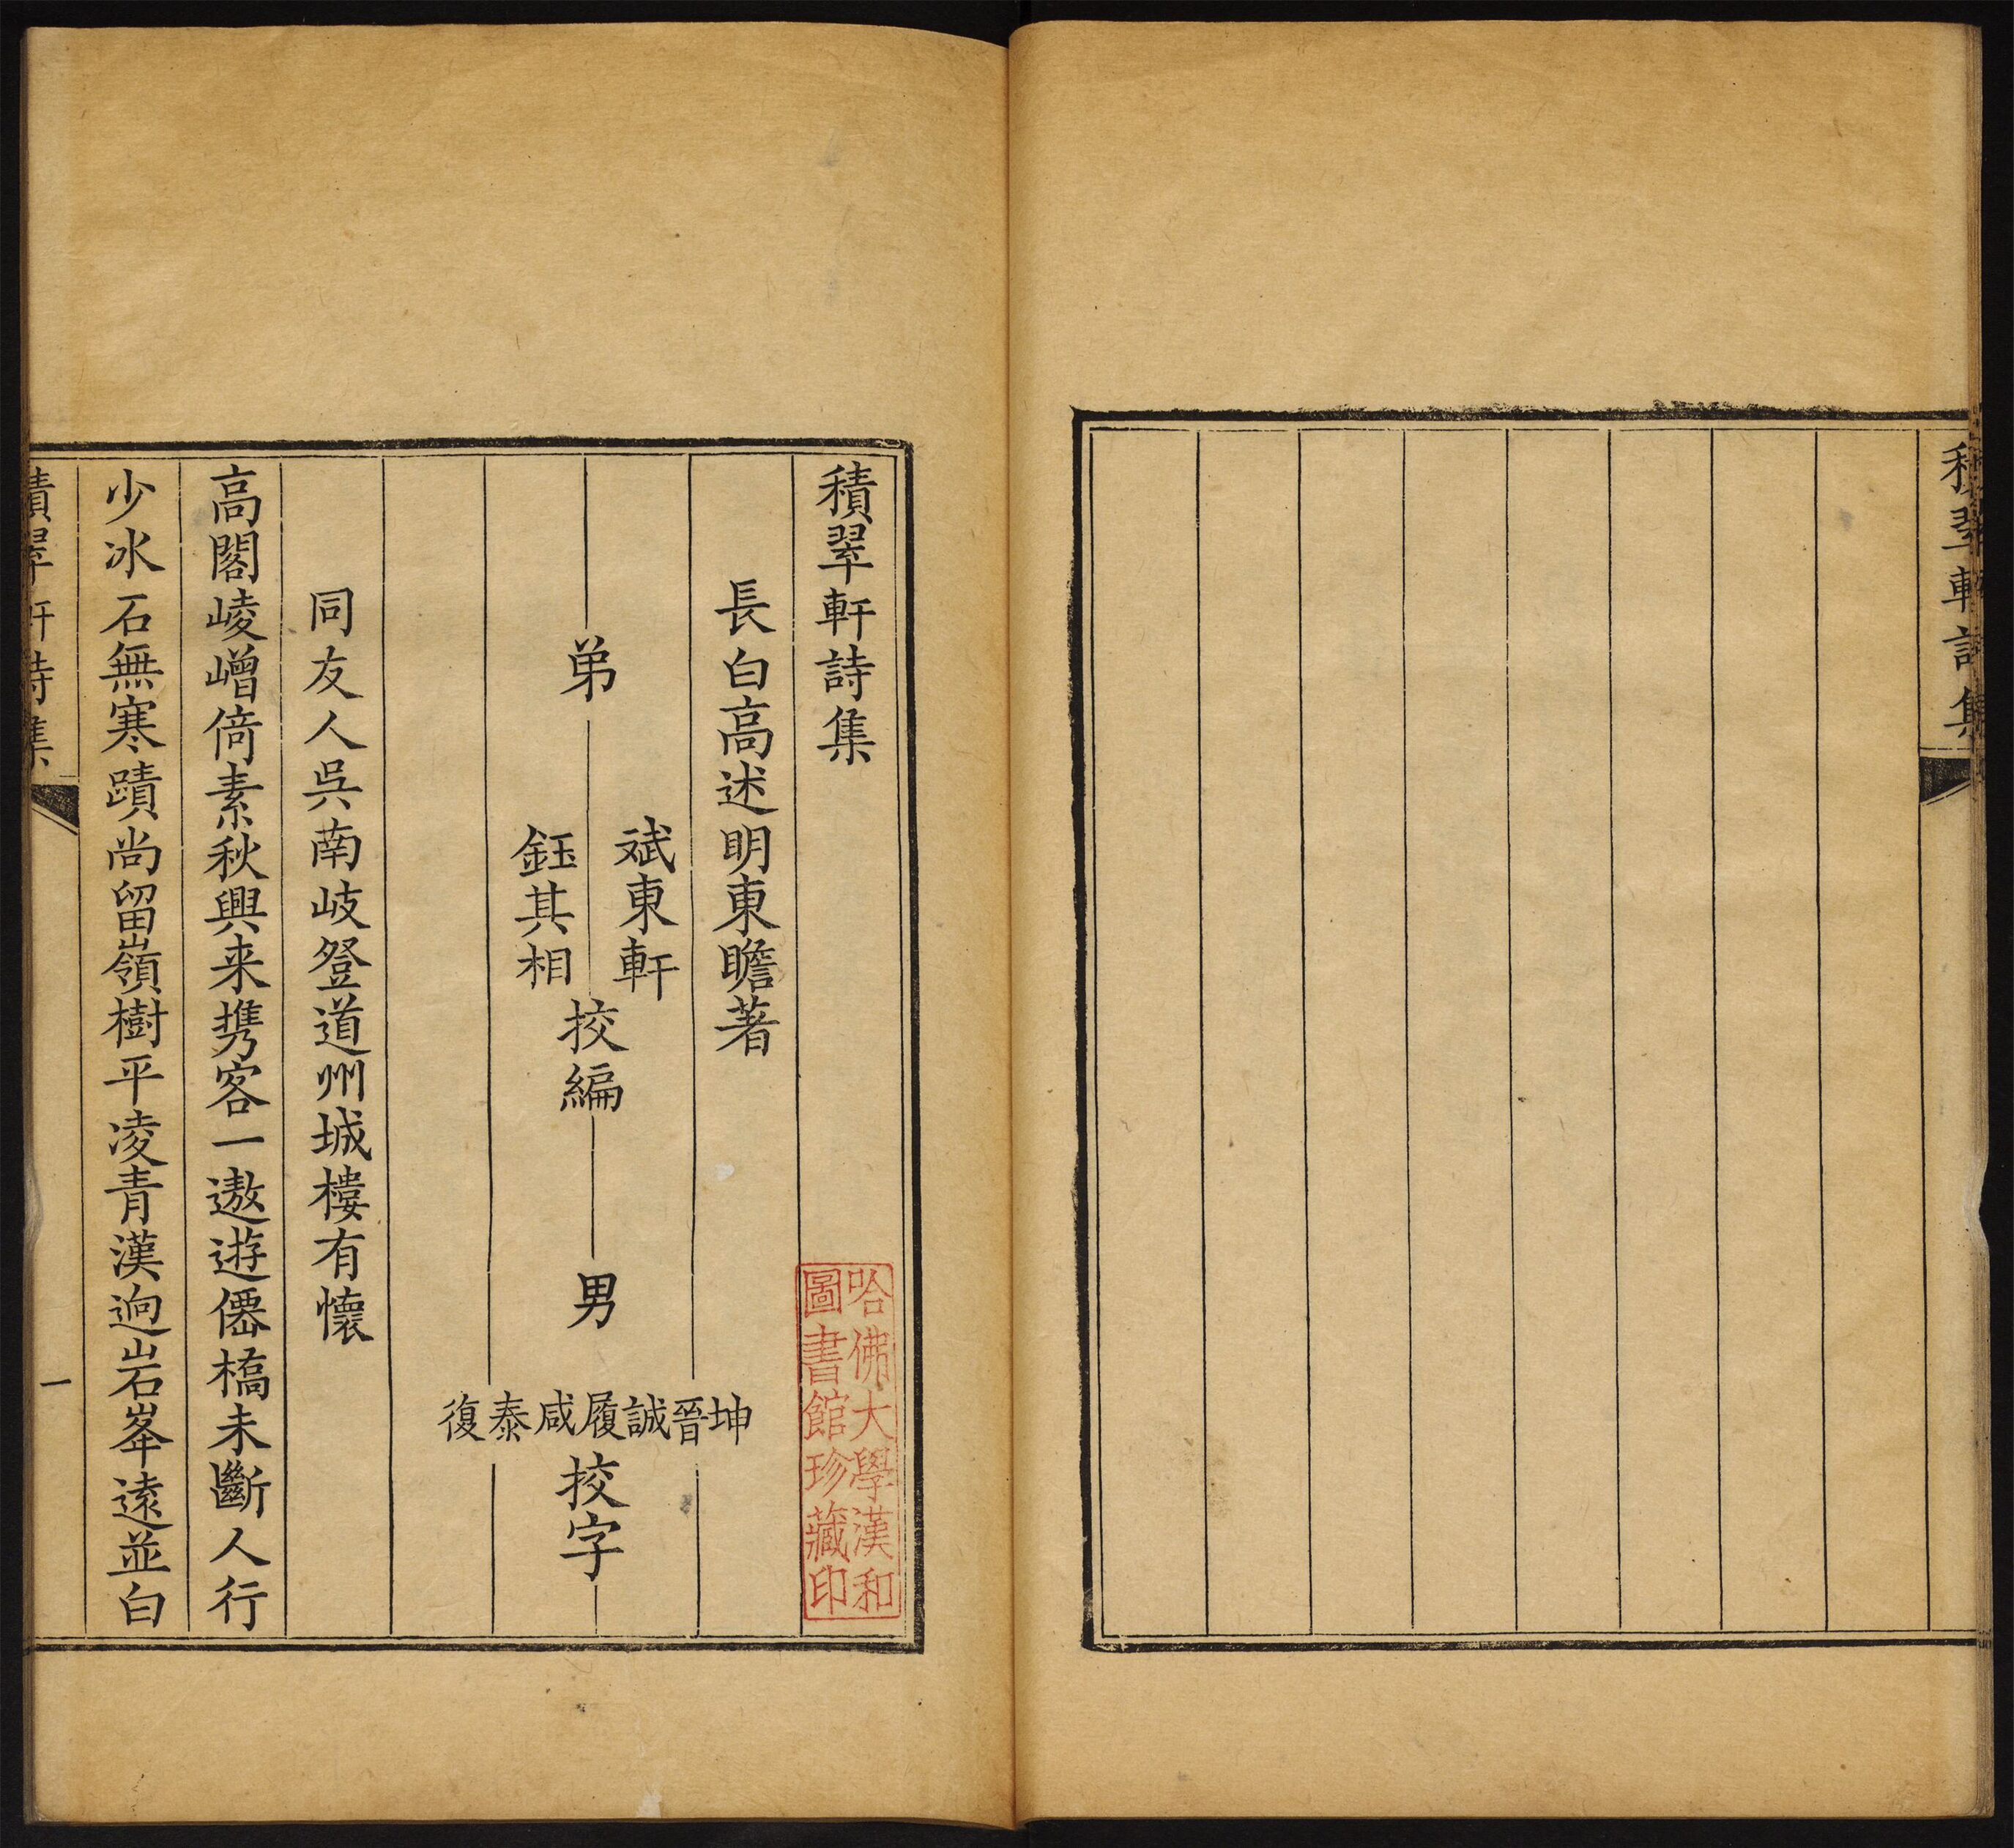 積翠軒詩集
積翠軒詩集
哈佛大學漢和
圖書館珍藏印
長白高述明東瞻著
弟
斌東軒
鈺其相
挍編
男
坤晉誠履咸泰復
挍字
同友人吳南岐登道州城樓有懷
高閣崚嶒倚素秋興来携客一遨遊僊橋未斷人行
少冰石無寒蹟尚留嶺樹平凌青漢逈岩峯遠並白
積翠軒詩集
一